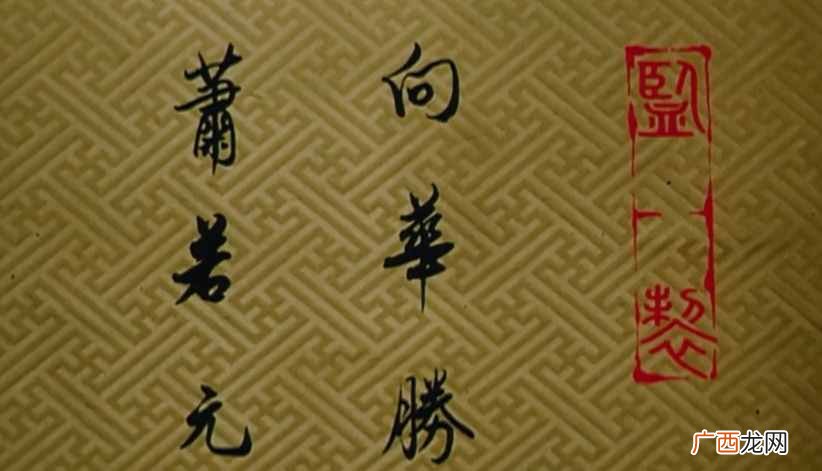 監製
向華勝
蕭若元
广西龙网